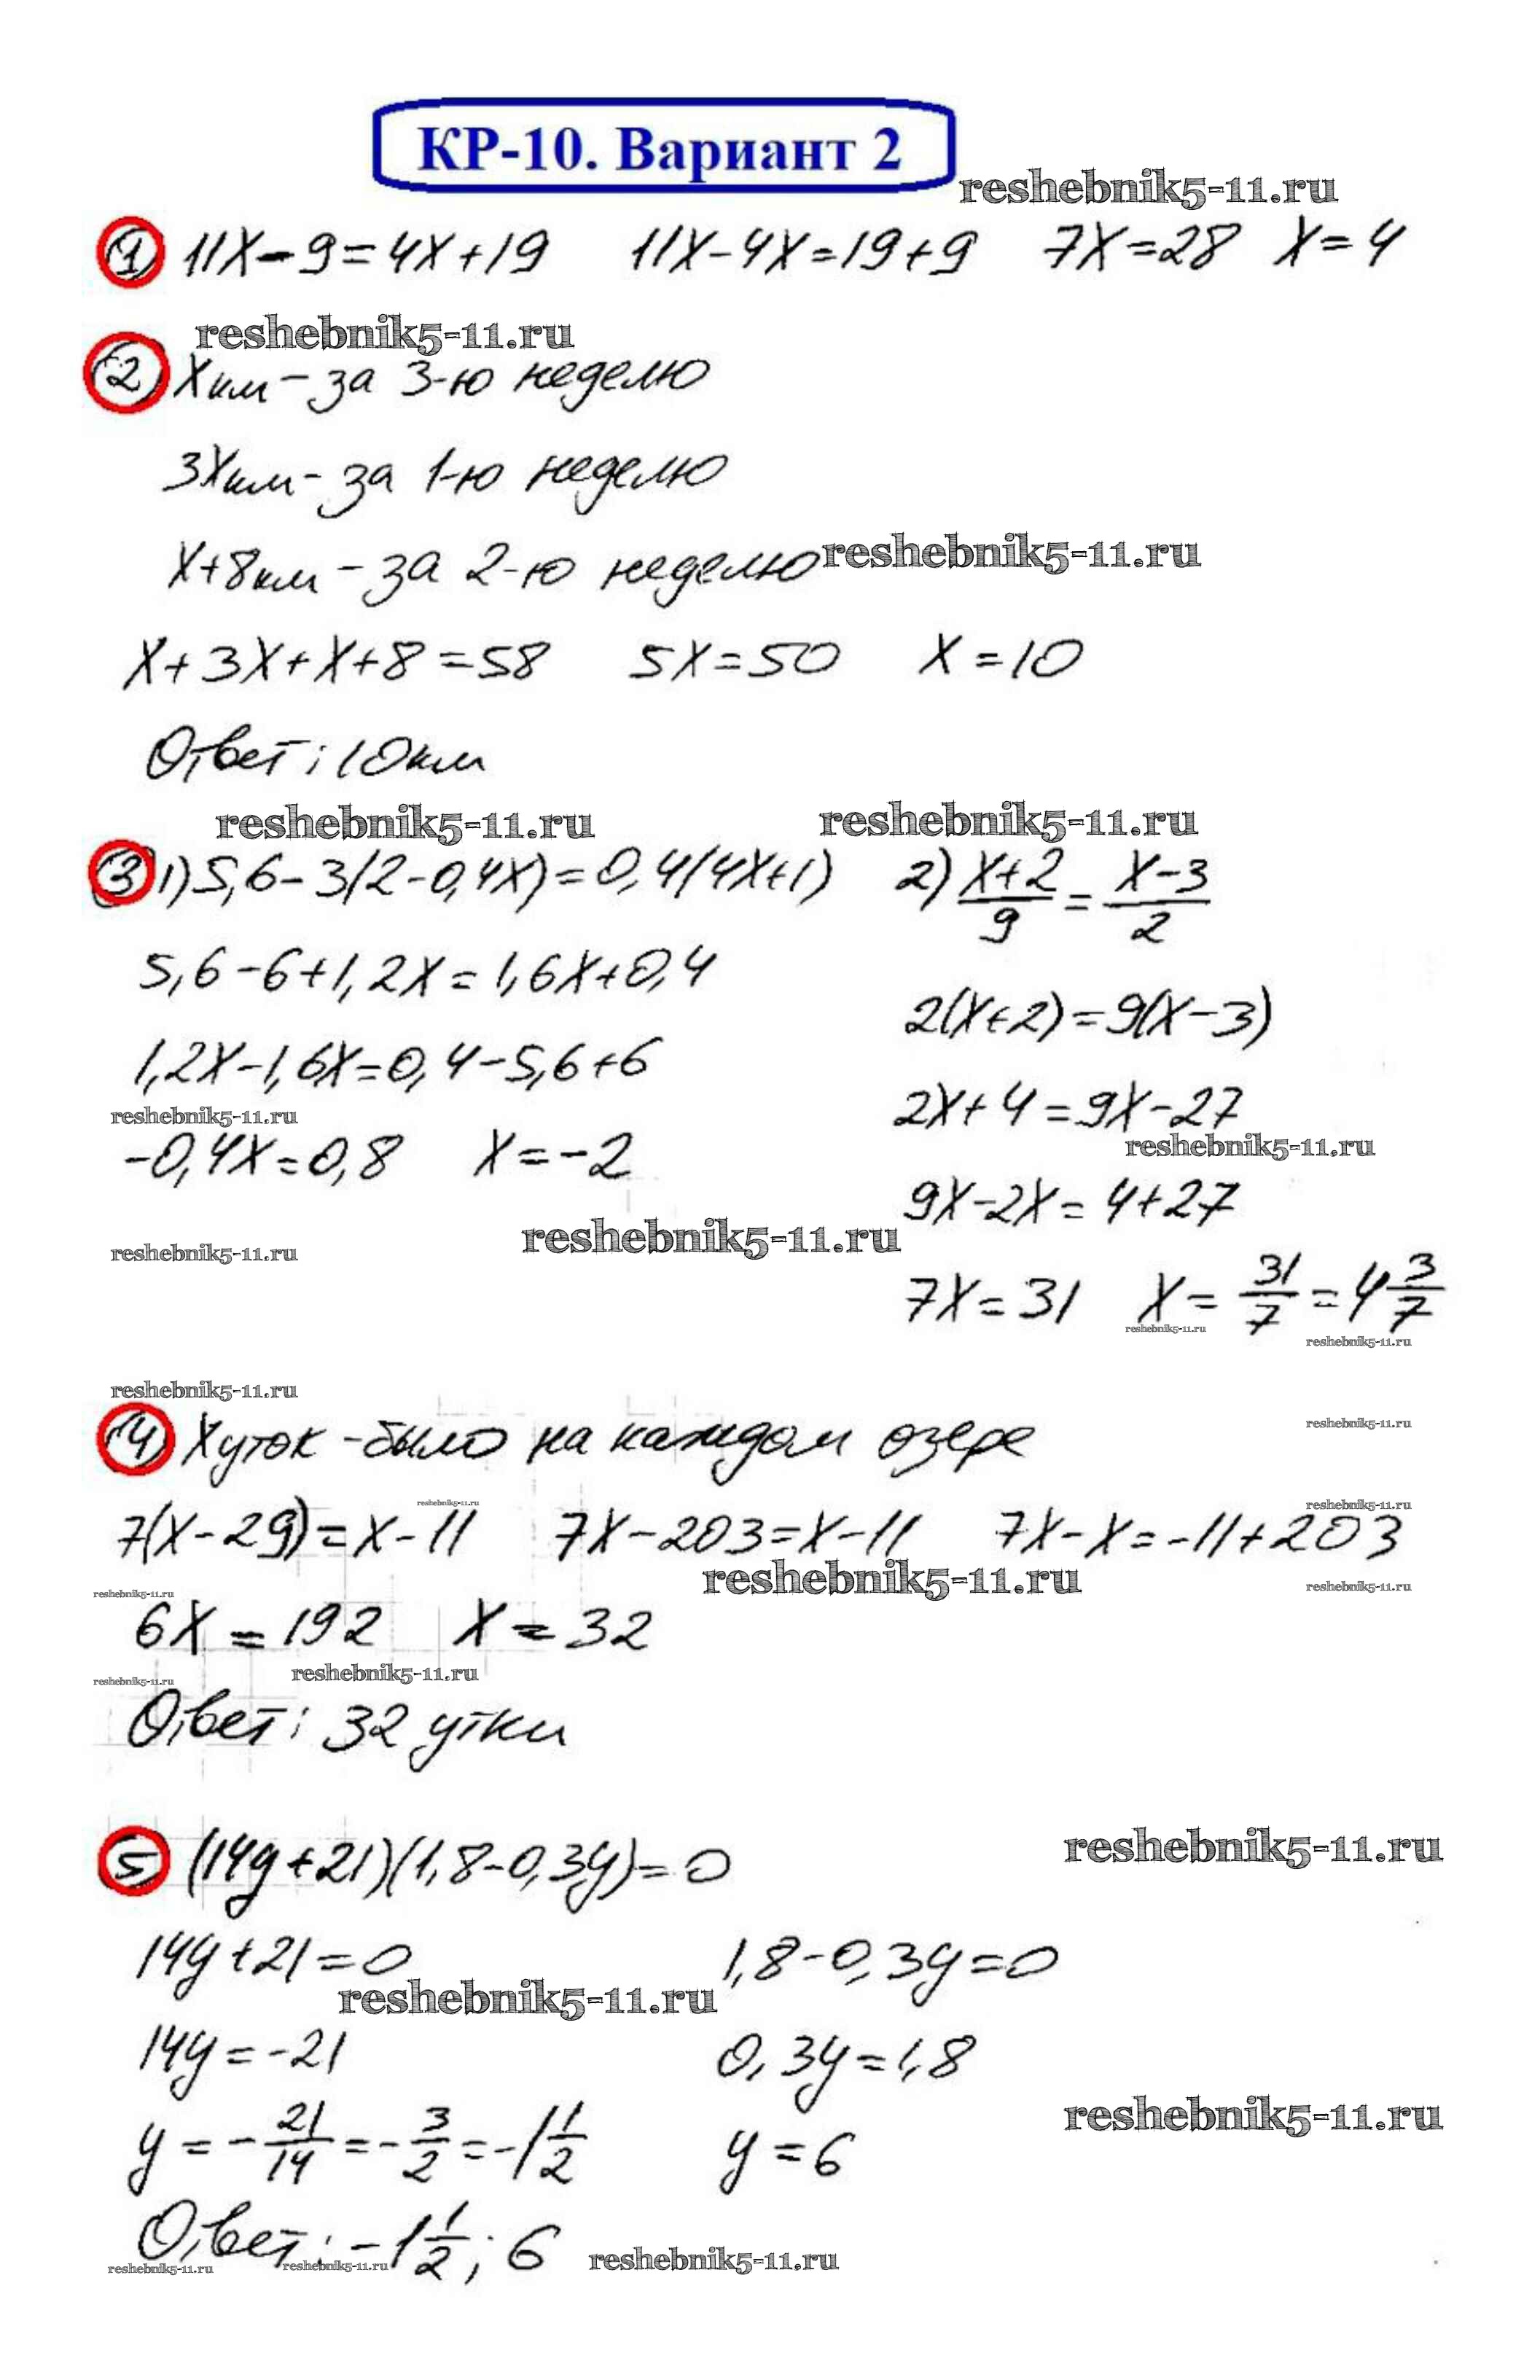 КР-10. Вариант 2
reshebnik5-11.ru
1) 11x-9=4x+19 11x-4x=19+9 7x=28 x=4
reshebnik5-11.ru
2) x км - за 3-ю неделю
3x км - за 1-ю неделю
x+8 км - за 2-ю неделю reshebnik5-11.ru
x+3x+x+8=58 5x=50 x=10
Ответ: 10 км
reshebnik5-11.ru reshebnik5-11.ru
3) 1) 5,6-3(2-0,4x)=0,4(4x+1)
5,6-6+1,2x=1,6x+0,4
1,2x-1,6x=0,4-5,6+6
reshebnik5-11.ru
-0,4x=0,8 x=-2
reshebnik5-11.ru reshebnik5-11.ru
2) (x+2)/9 = (x-3)/2
2(x+2)=9(x-3)
2x+4=9x-27
reshebnik5-11.ru
9x-2x=4+27
7x=31 x=31/7=4 3/7
reshebnik5-11.ru reshebnik5-11.ru
reshebnik5-11.ru
4) x уток - было на каждом озере reshebnik5-11.ru
reshebnik5-11.ru reshebnik5-11.ru
7(x-29)=x-11 7x-203=x-11 7x-x=-11+203
reshebnik5-11.ru reshebnik5-11.ru reshebnik5-11.ru
6x=192 x=32
reshebnik5-11.ru reshebnik5-11.ru
Ответ: 32 утки
5) (14y+21)(1,8-0,3y)=0 reshebnik5-11.ru
14y+21=0 1,8-0,3y=0
reshebnik5-11.ru
14y=-21 0,3y=1,8
reshebnik5-11.ru
y=-21/14=-3/2=-1 1/2 y=6
Ответ: -1 1/2; 6 reshebnik5-11.ru
reshebnik5-11.ru reshebnik5-11.ru